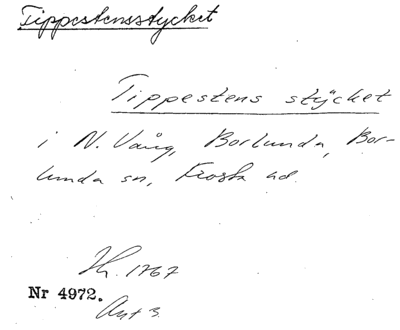 Tippestensstycket
Tippestens stÿcket
i N. Vång, Borlunda, Bor-
lunda sn, Frosta hd.
1767
Nr 4972.